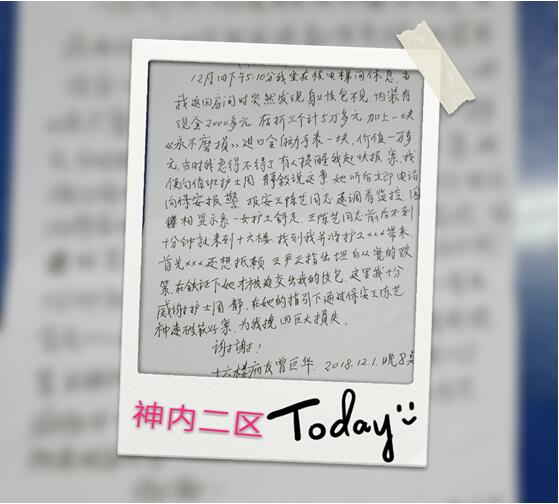 12月1日下午5:10分我坐在候电梯间休息,当
我返回房间时突然发现身上钱包不见,内装有
现金2000多元 存折三个计5万多元 加上一块
《永不磨损》进口全自动手表一块,价值一万多
元当时我急得不得了 有人提醒我赶快报案,我
便向值班护士周 静叙说这事 她听后立即电话
向保安报警 保安王陈艺同志速调看监控 
相显示系一女护工 王陈艺同志前后不到
十分钟就来到十六楼 找到我并将护工xxx带来,
首先xxx还想抵赖 王严正指出坦白从宽的政
策,在铁证下她才被迫交出我的钱包,这里我十分
感谢护士周 静,在她的指引下通过保安王陈艺
神速破获此案,为我挽回巨大损失,
谢谢!
十六楼病友曾巨华 2018.12.1.晚8点
神内二区 Today